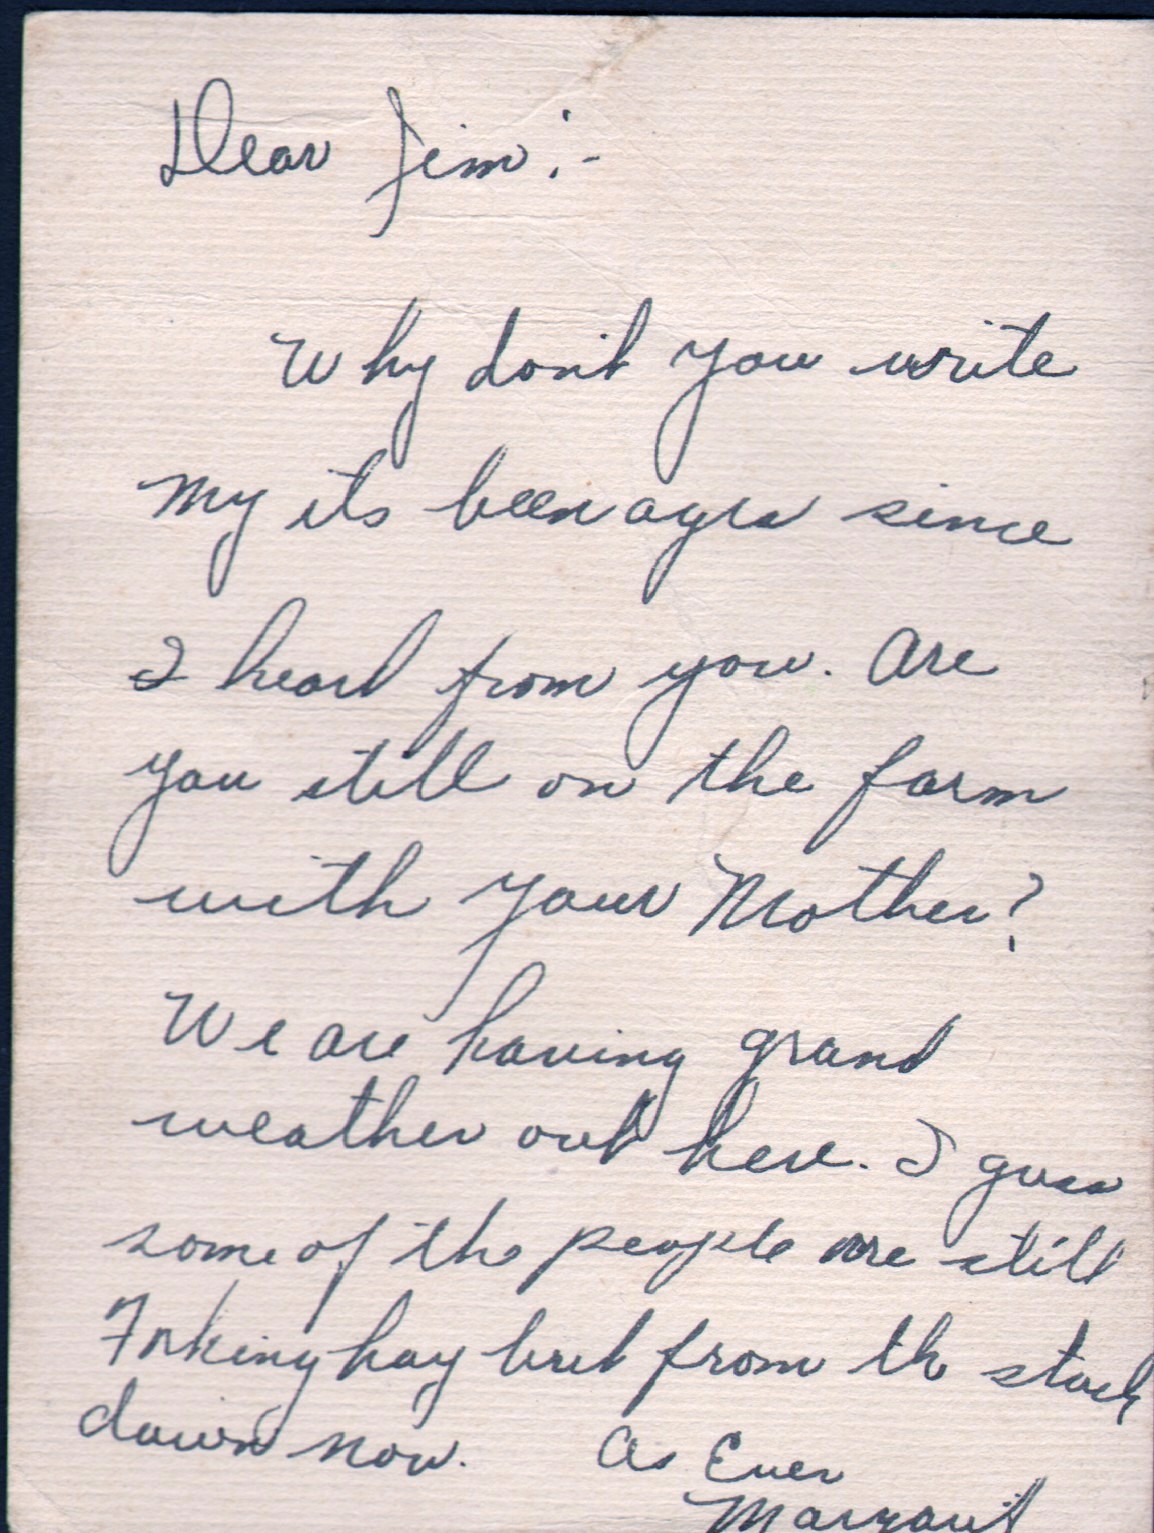 Dear Jim:-
Why don't you write
my its been ages since
I heard from you. Are
you still on the farm
with your Mother?
We are having grand
weather out here. I guess
some of the people are still
Forking hay but from th stack
down now. As Ever